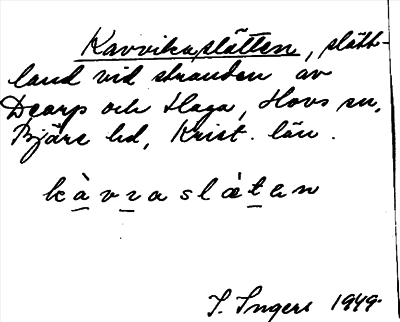 Kavvikaslätten, slätt-
land vid stranden av
Dearp och Haga, Hovs sn,
Bjäre hd, Krist. län.
kàvvaslǽtən
I. Ingers 1949.